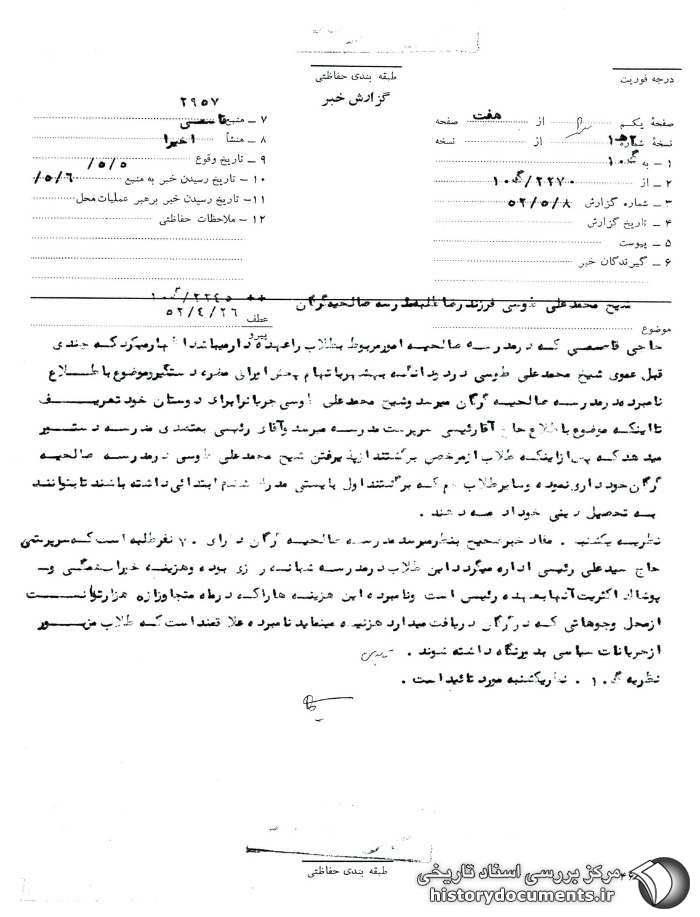 درجه فوریت
طبقه بندی حفاظتی
گزارش خبر
صفحهٔ یکم از هفت صفحه
نسخهٔ شماره از نسخه
۱ – به
۲ – از ۱۰ه‍/۲۲۷۰
۳ – شماره گزارش ۵۲/۵/۸
۴ – تاریخ گزارش
۵ – پیوست
۶ – گیرندگان خبر
۲۹۵۷
۷ – منبع قاسمی
۸ – منشأ اخیرا
۹ – تاریخ وقوع /۵/۵
۱۰ – تاریخ رسیدن خبر به منبع /۵/۶
۱۱ – تاریخ رسیدن خبر برهبر عملیات محل
۱۲ – ملاحظات حفاظتی
شیخ محمدعلی طوسی فرزند رضا طلبه مدرسه صالحیه گرگان
موضوع
عطف ۵۲/۴/۲۶
پیرو
حاجی قاسمی که در مدرسه صالحیه امور مربوط بطلاب را عهده دار میباشد اظهار میکرد که چندی
قبل عموی شیخ محمدعلی طوسی در رودانگه بهشهر باتهام پخش ایرانی دستگیر و موضوع باطلاع
نامبرده در مدرسه صالحیه گرگان میرسد وشیخ محمدعلی طوسی جریانرا برای دوستان خود تعریف
تا اینکه موضوع باطلاع حاج آقا رئیسی سرپرست مدرسه میرسد وآقای رئیسی بمتصدی مدرسه دستور
میدهد که پس از اینکه طلاب از مرخصی برگشتند از پذیرفتن شیخ محمدعلی طوسی در مدرسه صالحیه
گرگان خودداری نموده و سایر طلاب هم که برگشتند اول بایستی مدرک ششم ابتدائی داشته باشند تا بتوانند
به تحصیل دینی خود ادامه دهند .
نظریه یکشنبه . مفاد خبر صحیح بنظر میرسد مدرسه صالحیه گرگان دارای ۷۰ نفر طلبه است که سرپرستی
حاج سیدعلی رئیسی اداره میگردد این طلاب در مدرسه شبانه روزی بوده و هزینه خوراک همگی و
پوشاک اکثریت آنها بعهده رئیسی است ونامبرده این هزینه ها را که در ماه متجاوز از ده هزار تومان است
از محل وجوهاتی که در گرگان دریافت میدارد هزینه مینماید نامبرده علاقمند است که طلاب مزبور
از جریانات سیاسی بدور نگاه داشته شوند .
نظریه . نظر یکشنبه مورد تائید است .
طبقه بندی حفاظتی
مرکز بررسی اسناد تاریخی
historydocuments.ir